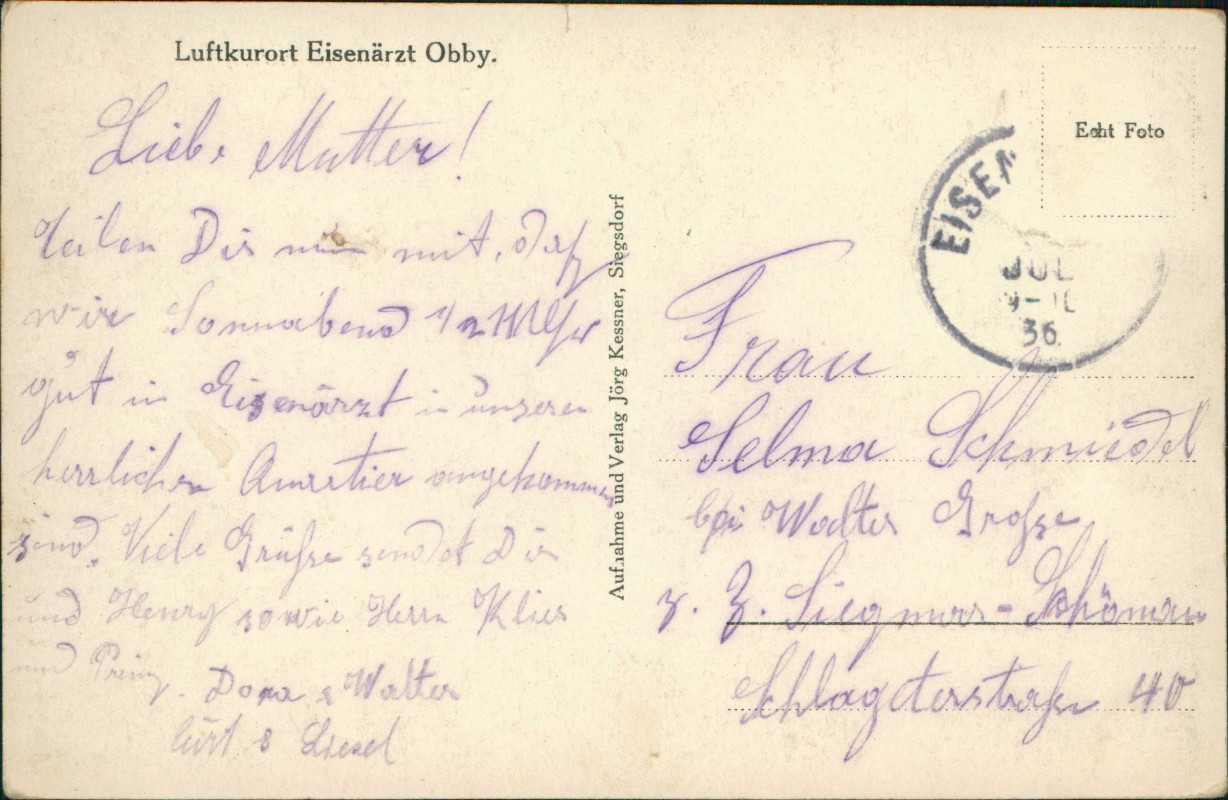 Luftkurort Eisenärzt Obby.
Liebe Mutter!
Teilen Dir nun mit, daß
wir Sonnabend 1/2 11 Uhr
gut in Eisenärzt in unseren
herrlichen Quartier angekommen
sind. Viele Grüße sendet Dir
und Henry sowie Herrn Klier
und Prinz. Dora & Walter
Curt & Liesel
Aufnahme und Verlag Jörg Kessner, Siegsdorf
Echt Foto
EISEN
JUL
36
Frau
Selma Schmiedel
bei Walter Große
z. Z. Siegmar-Schönau
Schlageterstraße 40